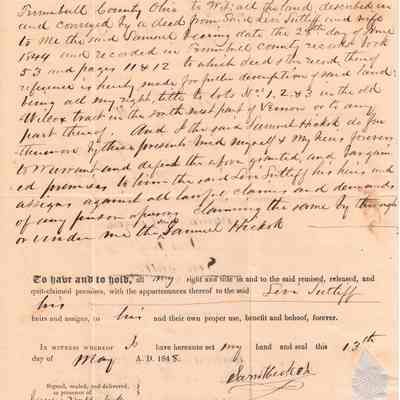 Trumbull County Ohio to Wit; all the land, described in
and conveyed by a deed from said Levi Sutliff and wife
to me the said Samuel bearing date the 28th day of June
1844 and recorded in Trumbull county records book
53 and pages 11 & 12 to which deed & the record thereof
reference is hereby made for fuller description of said land:
being all my right, title to lots No. 1, 2, & 3 in the old
Wilcox tract in the south west part of Vernon or to any
part thereof. And I the said Samuel Hickok do fur
thermore by these presents bind myself & my heirs forever
to Warrant and defend the above granted, and bargain
ed premises to him the said Levi Sutliff his heirs and
assigns against all lawful claims and demands
of any person or persons claiming the same by through
or under me the said Samuel Hickok
To have and to hold, all my right and title in and to the said remised, released, and
quit-claimed premises, with the appurtenances thereof to the said Levi Sutliff
his
heirs and assigns, to his and their own proper use, benefit and behoof, forever.
In witness whereof I have hereunto set my hand and seal this 13th
day of May A. D. 1848.
Saml Hickok
Signed, sealed, and delivered,
in presence of